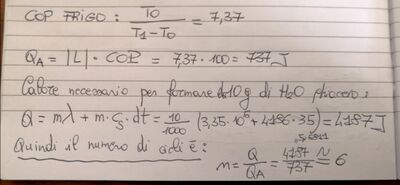 COP FRIGO : T0 / T1 - T0 = 7,37
QA = |L| · COP = 7,37 · 100 = 737 J
Calore necessario per formare 10g di H2O :
Q = mλ + m · cs · dt = 10/1000 (3,35·10^5 + 4186·35) = 4187 J
Quindi il numero di cicli è : n = Q/QA = 4187/737 ≈ 6